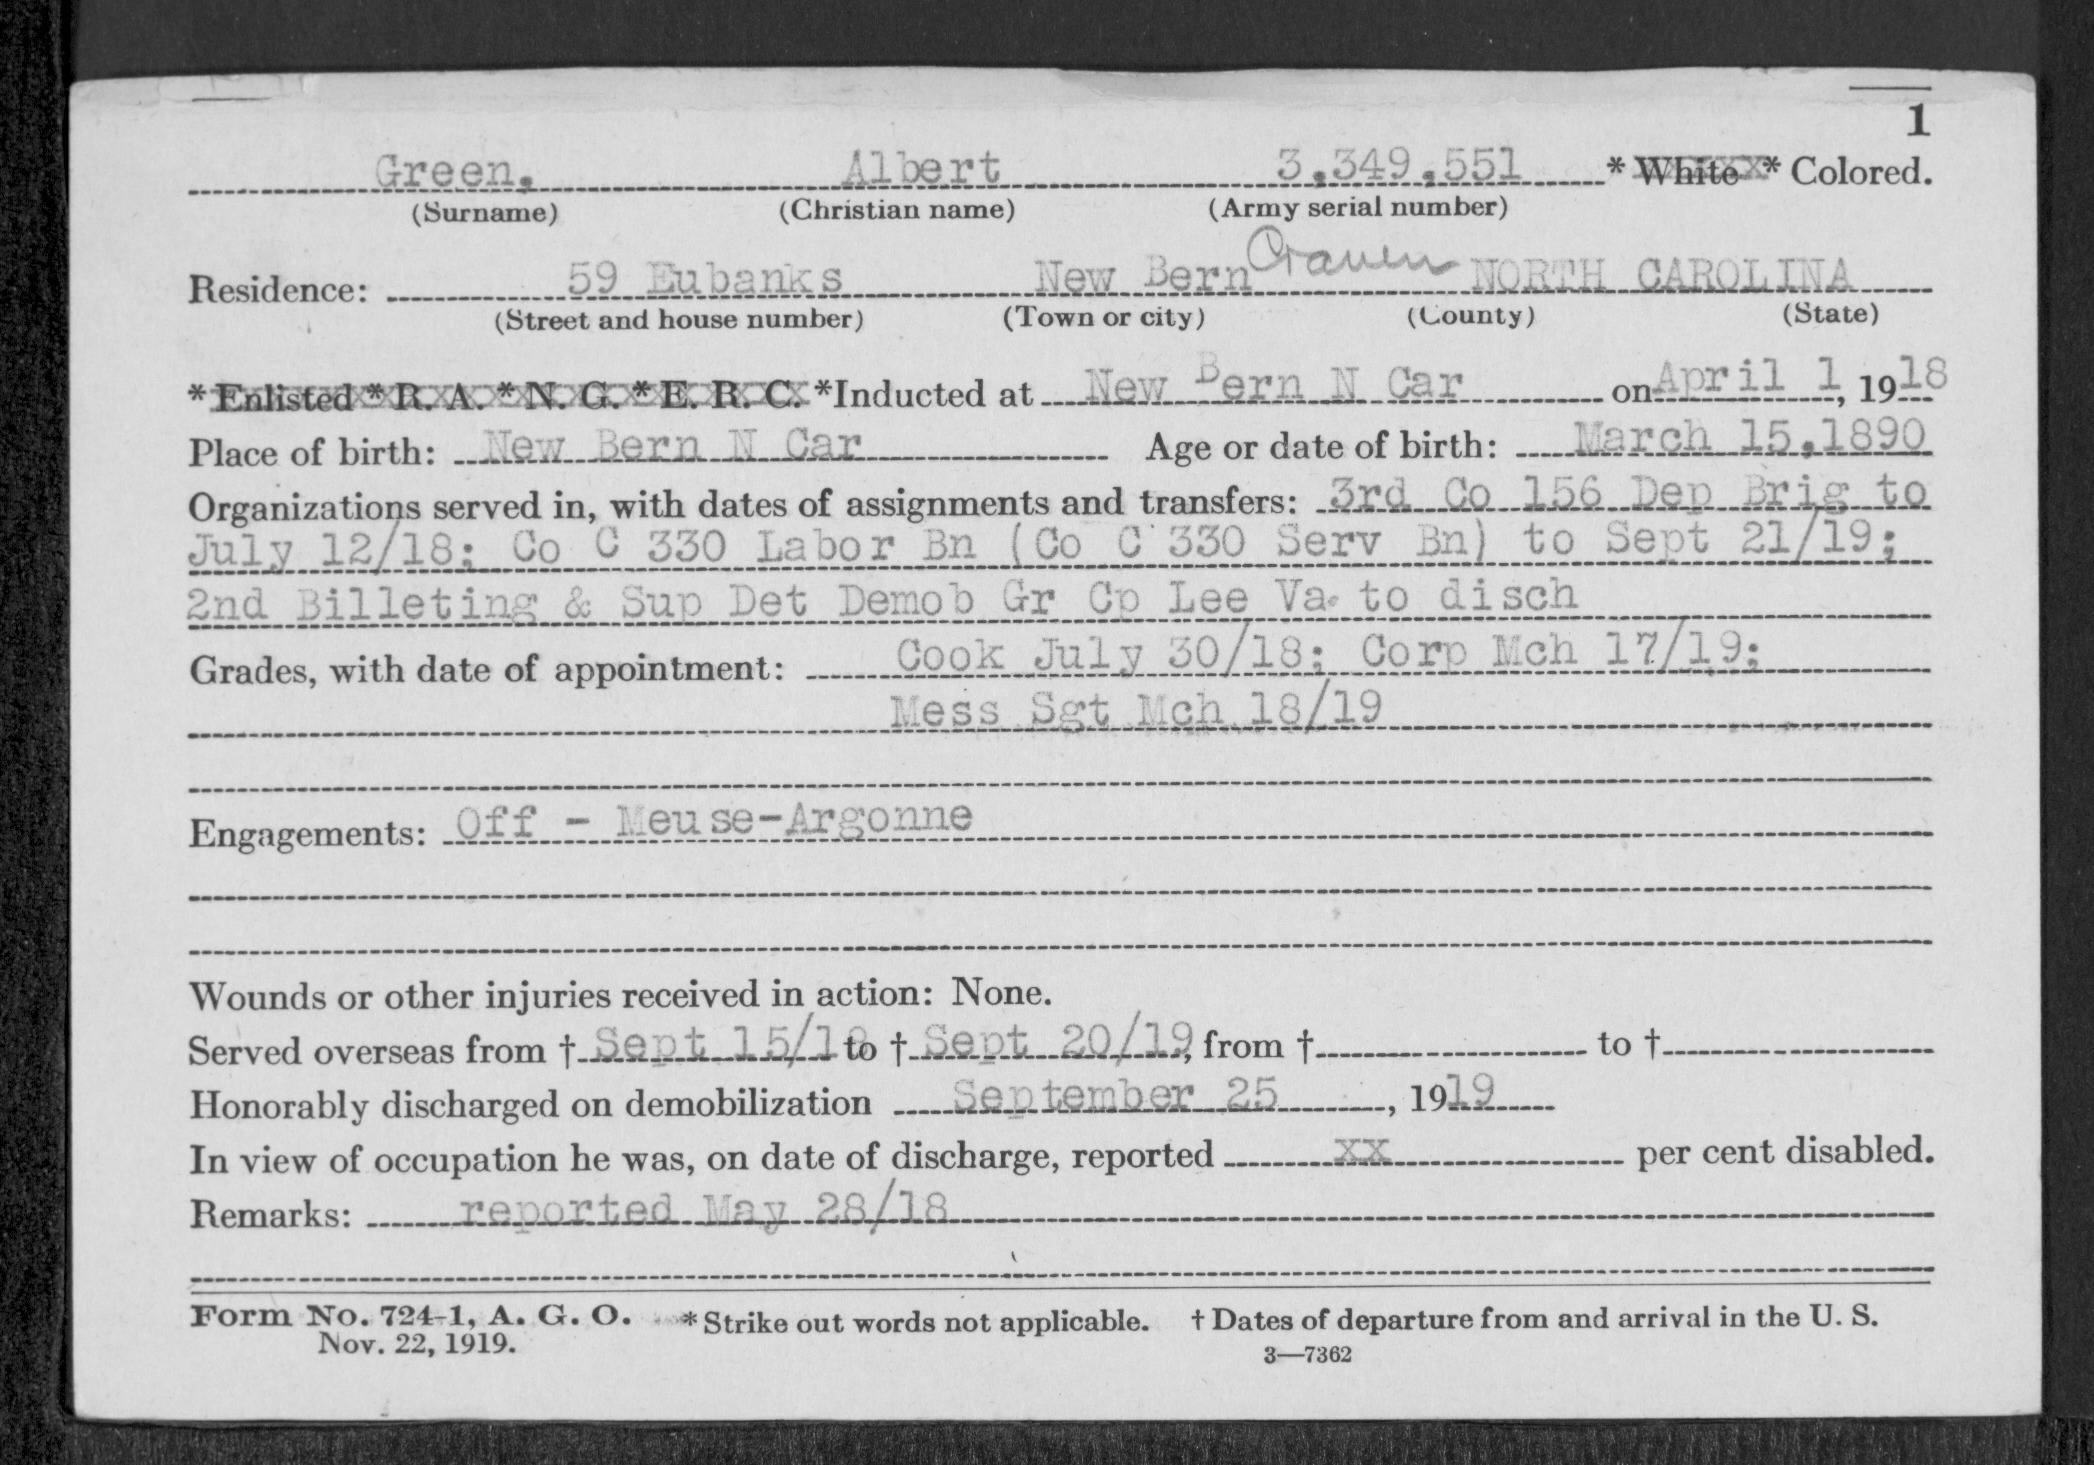 1
Green, Albert 3,349,551 * White * Colored.
(Surname) (Christian name) (Army serial number)
Residence: 59 Eubanks New Bern Craven NORTH CAROLINA
(Street and house number) (Town or city) (County) (State)
* Enlisted * R. A. * N. G. * E. R. C. *Inducted at New Bern N Car on April 1, 1918
Place of birth: New Bern N Car Age or date of birth: March 15,1890
Organizations served in, with dates of assignments and transfers: 3rd Co 156 Dep Brig to
July 12/18; Co C 330 Labor Bn (Co C 330 Serv Bn) to Sept 21/19;
2nd Billeting & Sup Det Demob Gr Cp Lee Va. to disch
Grades, with date of appointment: Cook July 30/18; Corp Mch 17/19;
Mess Sgt Mch 18/19
Engagements: Off - Meuse-Argonne
Wounds or other injuries received in action: None.
Served overseas from † Sept 15/18 to † Sept 20/19, from † to †
Honorably discharged on demobilization September 25, 1919
In view of occupation he was, on date of discharge, reported xx per cent disabled.
Remarks: reported May 28/18
Form No. 724-1, A. G. O. * Strike out words not applicable. † Dates of departure from and arrival in the U. S.
Nov. 22, 1919. 3—7362